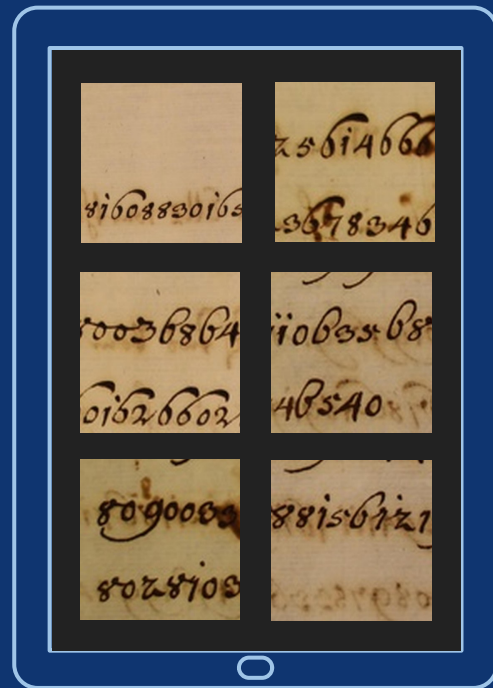 8160883016
2561466
3678346
0036864
01626602
ii063568
46540
809003
8028103
88156121